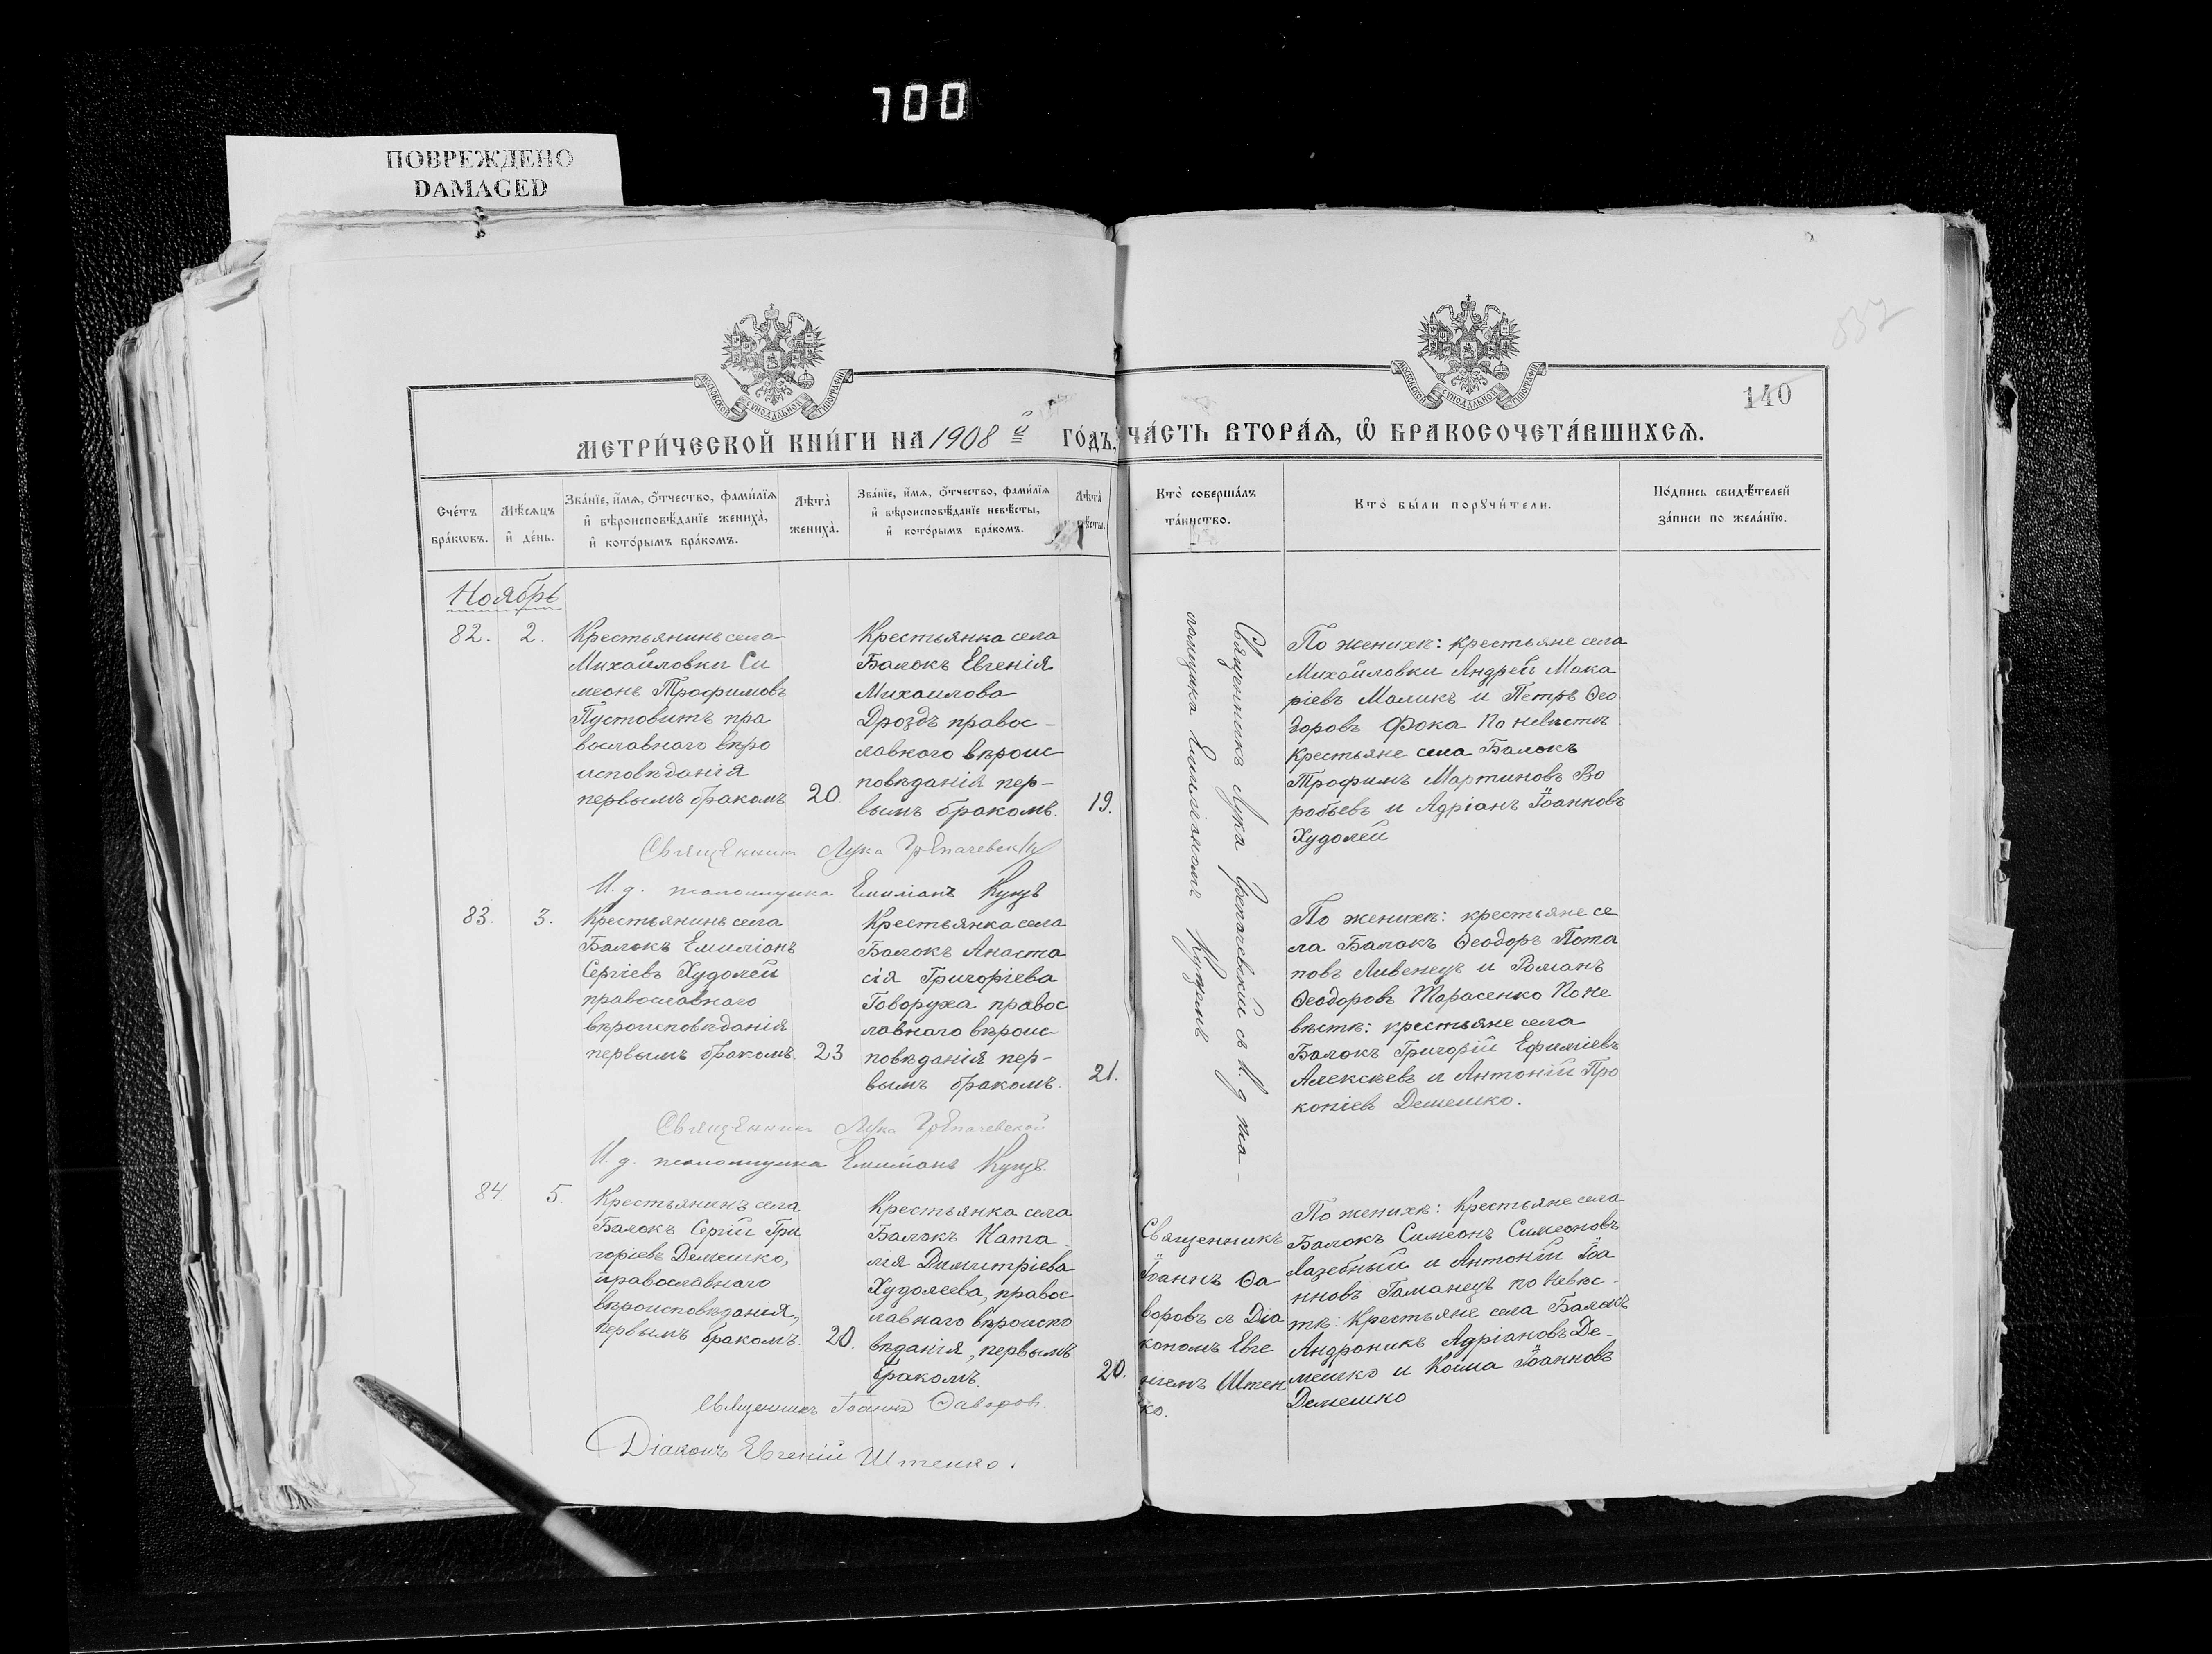 700
ПОВРЕЖДЕНО
DAMAGED
537
140
МОСКОВСКОЙ СѴНОДАЛЬНОЙ ТИПОГРАФІИ
МОСКОВСКОЙ СѴНОДАЛЬНОЙ ТИПОГРАФІИ
МЕТРИ́ЧЕСКОЙ КНИ́ГИ НА 1908 й ГО́ДЪ, ЧА́СТЬ ВТОРА́Ѧ, Ѽ БРАКОСОЧЕТА́ВШИХСѦ.
Сче́тъ
бра́кѡвъ.
Мѣ́сѧцъ
и҆ де́нь.
Зва́нїе, и҆́мѧ, ѻ҆́тчество, фами́лїѧ
и҆ вѣроисповѣ́данїе жениха̀,
и҆ кото́рымъ бра́комъ.
Лѣта̀
жениха̀.
Зва́нїе, и҆́мѧ, ѻ҆́тчество, фами́лїѧ
и҆ вѣроисповѣ́данїе невѣ́сты,
и҆ кото́рымъ бра́комъ.
Лѣта̀
Кто̀ соверша́лъ
та́инство.
Кто̀ бы́ли порꙋчи́тели.
По́дпись свидѣ́телей
за́писи по жела́нїю.
Ноябрь
82.
2.
Крестьянинъ села
Михайловки Си
меонъ Трофимовъ
Пустовитъ пра
вославнаго вѣро
исповѣданія
первымъ бракомъ
20.
Крестьянка села
Балокъ Евгенія
Михаилова
Дроздъ правос-
лавнаго вѣроис
повѣданія пер-
вымъ бракомъ.
19.
Священникъ Лука с И. д пса-
ломщика Емиліаномъ
По женихѣ: крестьяне села
Михайловки Андрей Мака
ріевъ Маликъ и Петръ Ѳео
доровъ Фока По невѣстѣ
Крестьяне села Балокъ
Трофимъ Мартиновъ Во
робьевъ и Адріанъ Іоанновъ
Худолей
Священникъ Лука
И. д. псаломщика Емиліанъ
83.
3.
Крестьянинъ села
Балокъ Емиліанъ
Сергіевъ Худолей
православнаго
вѣроисповѣданія
первымъ бракомъ.
23
Крестьянка села
Балокъ Анаста
сія Григоріева
Говоруха правос
лавнаго вѣроис-
повѣданія пер-
вымъ бракомъ.
21.
По женихѣ: крестьяне се
ла Балокъ Ѳеодоръ Пота
повъ Ливенецъ и Романъ
Ѳеодоровъ Тарасенко По не
вѣстѣ: крестьяне села
Балокъ Григорій Ефиміевъ
Алексѣевъ и Антоній Про
копіевъ Демешко.
Священникъ Лука
И. д. псаломщика Емиліанъ
84.
5.
Крестьянинъ села
Балокъ Сергій Гри
горіевъ Демешко,
православнаго
вѣроисповѣданія,
первымъ бракомъ.
20.
Крестьянка села
Балокъ Ната-
лія Димитріева
Худолеева, правос
лавнаго вѣроиспо
вѣданія, первымъ
бракомъ.
20.
Священникъ
Іоаннъ Ѳа
воровъ съ Діа
кономъ Евге
ніемъ Штен
ко.
По женихѣ: Крестьяне села
Балокъ Симеонъ Симеоновъ
Лазебный и Антоній Іоа
нновъ Гаманецъ по невѣс-
тѣ: Крестьяне села Балокъ
Андроникъ Адріановъ Де-
мешко и Косма Іоанновъ
Демешко
Священникъ Іоаннъ Ѳаворов
Діаконъ Евгеній Штенко.